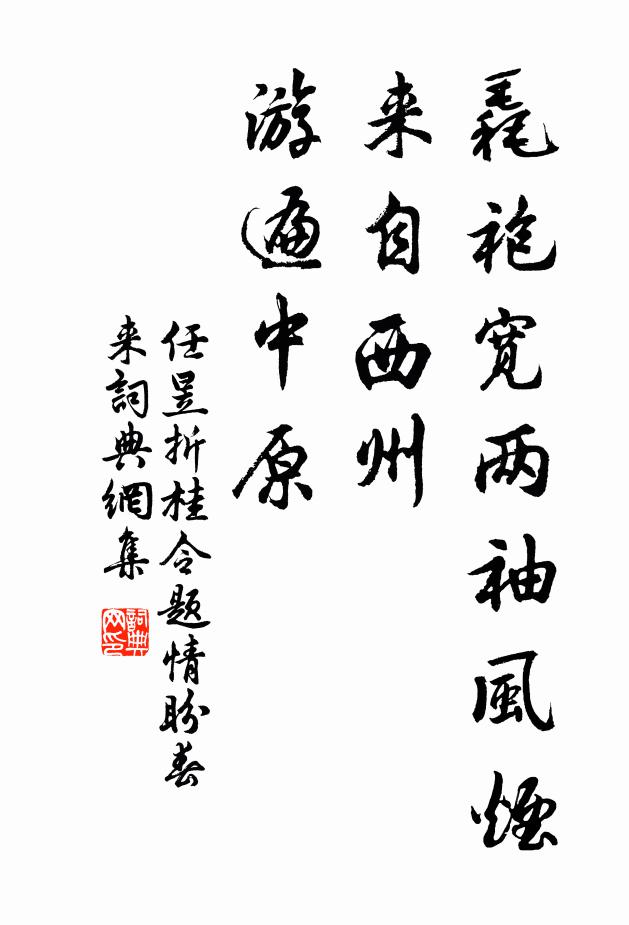 毳袍宽两袖風煙
来自西州
游遍中原
任昱折桂令题情盼春
来詞典網集
詞典
网印